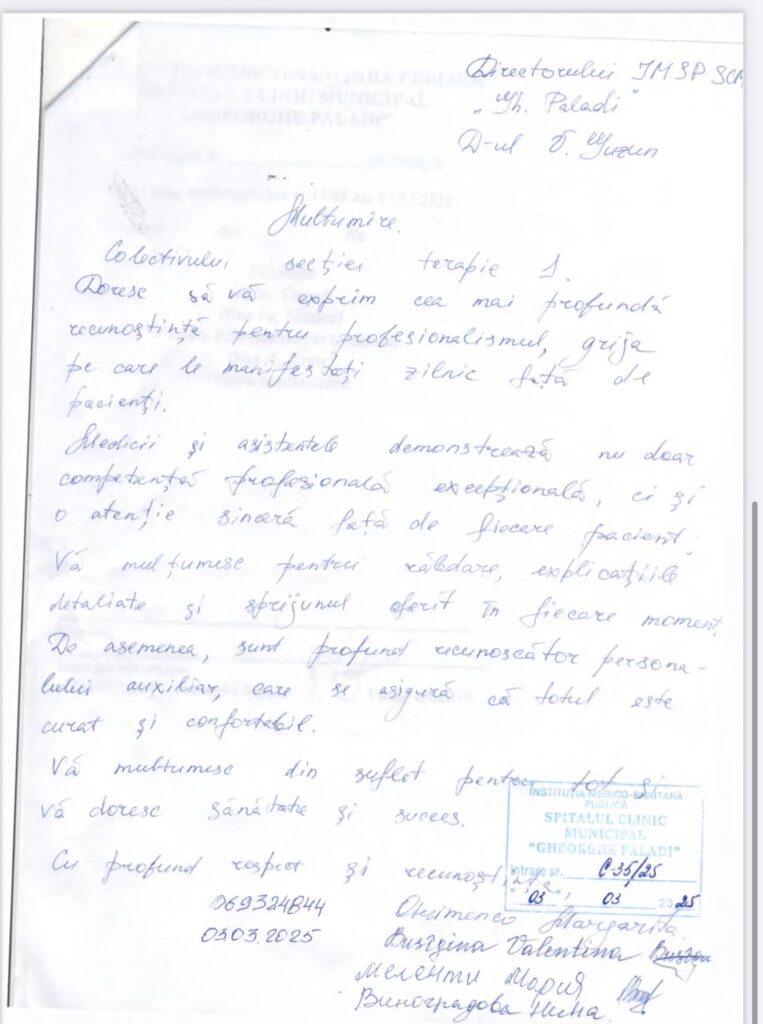 Directorului IMSP SCM
„Gh. Paladi"
D-ul V. Guzun
Multumire.
Colectivului secției terapie 1.
Doresc să vă exprim cea mai profundă
recunoștință pentru profesionalismul, grija
pe care le manifestați zilnic față de
pacienți.
Medicii și asistentele demonstrează nu doar
competență profesională excepțională, ci și
o atenție sinceră față de fiecare pacient.
Vă mulțumesc pentru răbdare, explicațiile
detaliate și sprijunul oferit în fiecare moment.
De asemenea, sunt profund recunoscător persona-
lului auxiliar, care se asigură că totul este
curat și confortabil.
Vă multumesc din suflet pentru tot și
vă doresc sănătate și succes.
INSTITUȚIA MEDICO-SANITARĂ
PUBLICĂ
SPITALUL CLINIC
MUNICIPAL
"GHEORGHE PALADI"
Intrare nr. C-35/25
"03" 03 2025
Cu profund respect și recunoștință,
069324844
Margarita
03.03.2025
Busîgina Valentina
Меленти Мария
Виноградова Нина.